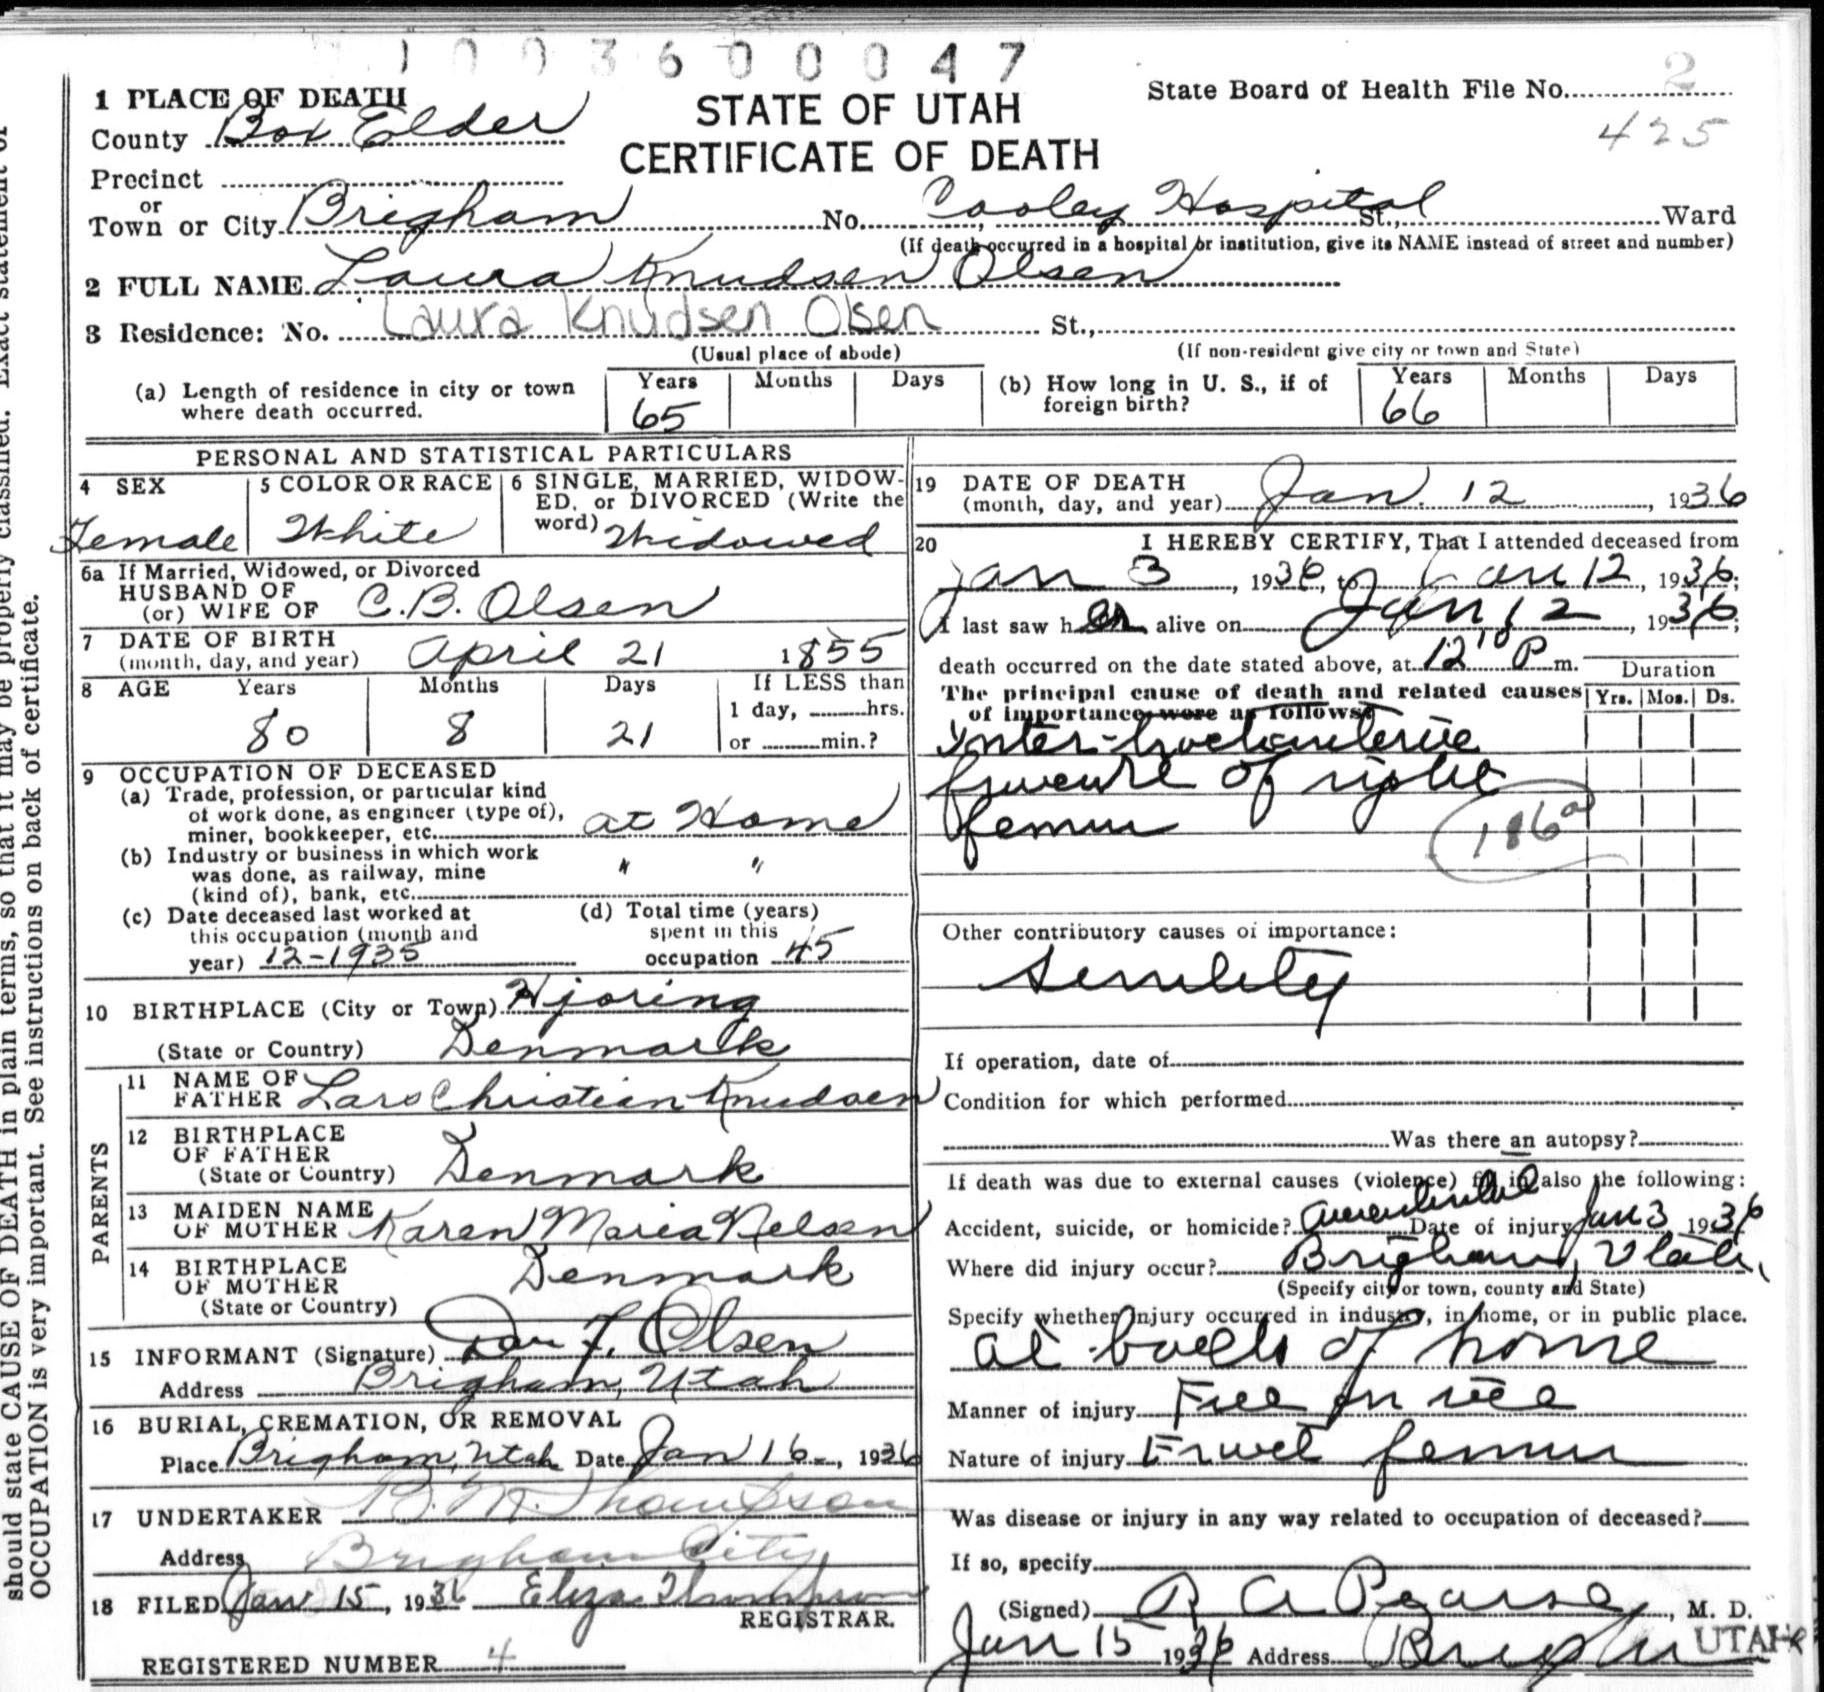 1003600047
1 PLACE OF DEATH
County Box Elder
STATE OF UTAH
CERTIFICATE OF DEATH
State Board of Health File No. 2
425
Precinct
or
Town or City Brigham No. Cooley Hospital St., Ward
(If death occurred in a hospital or institution, give its NAME instead of street and number)
2 FULL NAME Laura Knudsen Olsen
3 Residence: No. Laura Knudsen Olsen St.,
(Usual place of abode) (If non-resident give city or town and State)
(a) Length of residence in city or town where death occurred. Years 65 Months Days
(b) How long in U. S., if of foreign birth? Years 66 Months Days
PERSONAL AND STATISTICAL PARTICULARS
4 SEX Female
5 COLOR OR RACE White
6 SINGLE, MARRIED, WIDOW-
ED, or DIVORCED (Write the
word) Widowed
6a If Married, Widowed, or Divorced
HUSBAND OF
(or) WIFE OF C.B. Olsen
7 DATE OF BIRTH
(month, day, and year) April 21 1855
8 AGE Years 80 Months 8 Days 21 If LESS than
1 day, hrs.
or min.?
9 OCCUPATION OF DECEASED
(a) Trade, profession, or particular kind
of work done, as engineer (type of),
miner, bookkeeper, etc. at Home
(b) Industry or business in which work
was done, as railway, mine
(kind of), bank, etc. " "
(c) Date deceased last worked at
this occupation (month and
year) 12-1935
(d) Total time (years)
spent in this
occupation 45
10 BIRTHPLACE (City or Town) Hjoring
(State or Country) Denmark
PARENTS
11 NAME OF
FATHER Lars Christian Knudsen
12 BIRTHPLACE
OF FATHER
(State or Country) Denmark
13 MAIDEN NAME
OF MOTHER Karen Maria Nelsen
14 BIRTHPLACE
OF MOTHER
(State or Country) Denmark
15 INFORMANT (Signature) Olsen
Address Brigham, Utah
16 BURIAL, CREMATION, OR REMOVAL
Place Brigham, Utah Date Jan 16, 1936
17 UNDERTAKER Thompson
Address Brigham City
18 FILED Jan 15, 1936 Eliza Thompson
REGISTRAR.
REGISTERED NUMBER 4
19 DATE OF DEATH
(month, day, and year) Jan. 12, 1936
20 I HEREBY CERTIFY, That I attended deceased from
Jan 3, 1936, to Jan 12, 1936;
I last saw her alive on Jan 12, 1936;
death occurred on the date stated above, at 12 10 P m.
Duration
The principal cause of death and related causes
of importance were as follows: Yrs. Mos. Ds.
Inter-trochanteric
fracture of right
femur
186a
Other contributory causes of importance:
Senility
If operation, date of
Condition for which performed
Was there an autopsy?
If death was due to external causes (violence) fill in also the following:
Accident, suicide, or homicide? accidental Date of injury Jan 3, 1936
Where did injury occur? Brigham, Utah,
(Specify city or town, county and State)
Specify whether injury occurred in industry, in home, or in public place.
at back of home
Manner of injury Fell on ice
Nature of injury Fract femur
Was disease or injury in any way related to occupation of deceased?
If so, specify
(Signed) R A Pearse, M. D.
Jan 15 1936 Address Brigham UTAH
should state CAUSE OF DEATH in plain terms, so that it may be properly classified. Exact statement of
OCCUPATION is very important. See instructions on back of certificate.